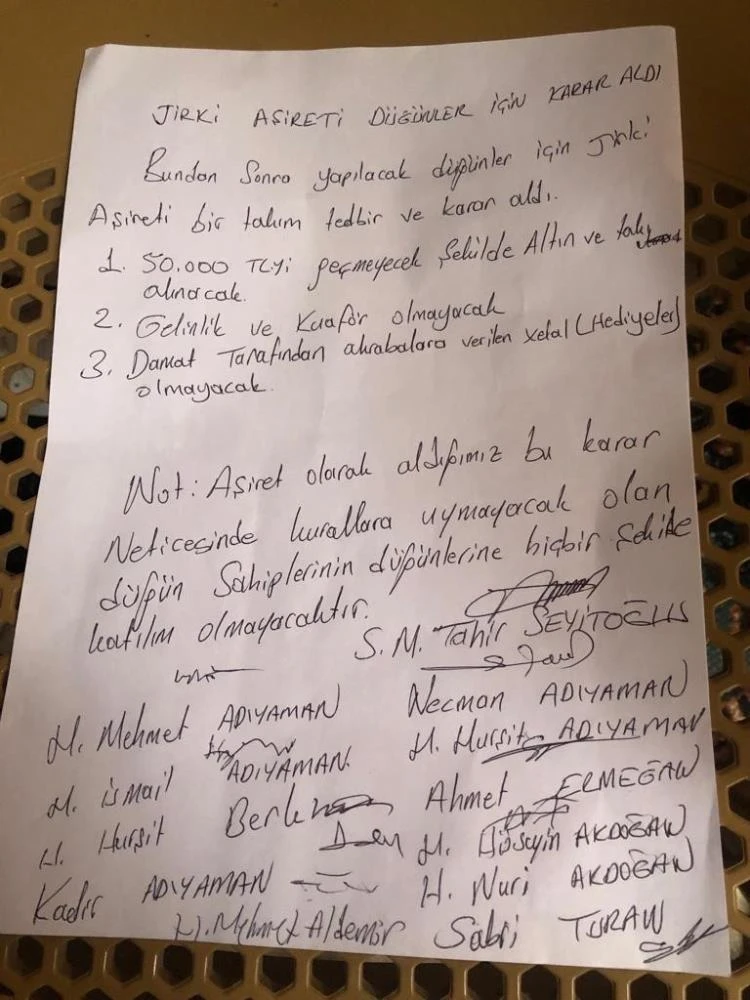 JİRKİ AŞİRETİ DÜĞÜNLER İÇİN KARAR ALDI
Bundan Sonra yapılacak düğünler için Jirki
Aşireti bir takım tedbir ve karar aldı.
1. 50.000 TLyi geçmeyecek Şekilde Altın ve takı
alınacak.
2. Gelinlik ve Kuaför olmayacak
3. Damat Tarafından akrabalara verilen xelal (Hediyeler)
olmayacak.
Not: Aşiret olarak aldığımız bu karar
Neticesinde kurallara uymayacak olan
düğün Sahiplerinin düğünlerine hiçbir Şekilde
katılım olmayacaktır.
S. M. Tahir SEYİTOĞLU
H. Mehmet ADIYAMAN Necman ADIYAMAN
H. İsmail ADIYAMAN. H. Hurşit ADIYAMAN
H. Hurşit Ahmet ERMEĞAN
H. Hüseyin AKDOĞAN
Kadir ADIYAMAN H. Nuri AKDOĞAN
H. Mehmet Aldemir Sabri TURAN